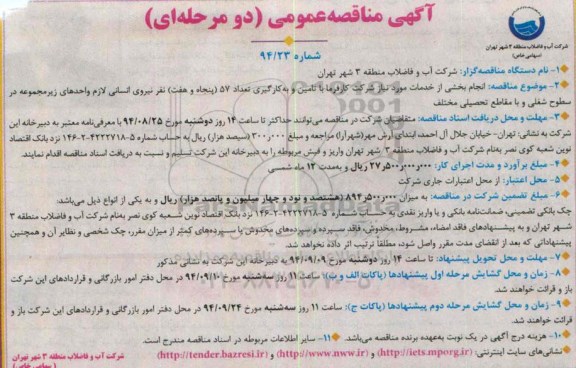 آگهی مناقصه‌عمومی (دو مرحله‌ای)
شرکت آب و فاضلاب منطقه ۳ شهر تهران
(سهامی خاص)
شماره ۹۴/۲۳
۱- نام دستگاه مناقصه‌گزار: شرکت آب و فاضلاب منطقه ۳ شهر تهران
۲- موضوع مناقصه: انجام بخشی از خدمات مورد نیاز شرکت کارفرما با تامین و به‌کارگیری تعداد ۵۷ (پنجاه و هفت) نفر نیروی انسانی لازم واحدهای زیرمجموعه در
سطوح شغلی و با مقاطع تحصیلی مختلف
۳- مهلت و محل دریافت اسناد مناقصه: متقاضیان شرکت در مناقصه می‌توانند حداکثر تا ساعت ۱۴ روز دوشنبه مورخ ۹۴/۰۸/۲۵ با معرفی‌نامه معتبر به دبیرخانه این
شرکت به نشانی: تهران- خیابان جلال آل احمد ابتدای آرش مهر(شهرآرا) مراجعه و مبلغ ۳۰۰٫۰۰۰ (سیصد هزار) ریال به حساب شماره ۵-۴۲۲۲۷۱۸-۲-۱۴۶ نزد بانک اقتصاد
نوین شعبه کوی نصر به‌نام شرکت آب و فاضلاب منطقه ۳ شهر تهران واریز و فیش مربوطه را به دبیرخانه این شرکت تسلیم و نسبت به دریافت اسناد مناقصه اقدام نمایند.
۴- مبلغ برآورد و مدت اجرای کار: ۲۷٫۵۰۰٫۰۰۰٫۰۰۰ ریال و به‌مدت ۱۲ ماه شمسی
۵- محل اعتبار: از محل اعتبارات جاری شرکت
۶- مبلغ تضمین شرکت در مناقصه: به میزان ۸۹۴٫۵۰۰٫۰۰۰ (هشتصد و نود و چهار میلیون و پانصد هزار) ریال و به یکی از انواع ذیل می‌باشد:
چک بانکی تضمینی، ضمانت‌نامه بانکی و یا واریز نقدی به حساب شماره ۵-۴۲۲۲۷۱۸-۲-۱۴۶ نزد بانک اقتصاد نوین شعبه کوی نصر به‌نام شرکت آب و فاضلاب منطقه ۳
شهر تهران و به پیشنهادهای فاقد امضاء، مشروط، مخدوش، فاقد سپرده و سپرده‌های مخدوش یا سپرده‌های کمتر از میزان مقرر، چک شخصی و نظایر آن و همچنین
پیشنهاداتی که بعد از انقضای مدت مقرر واصل شود، مطلقا ترتیب اثر داده نخواهد شد.
۷- مهلت و محل تحویل پیشنهاد: تا ساعت ۱۴ روز دوشنبه مورخ ۹۴/۰۹/۰۹ به دبیرخانه این شرکت به نشانی مذکور
۸- زمان و محل گشایش مرحله اول پیشنهادها (پاکات الف و ب): ساعت ۱۱ روز سه‌شنبه مورخ ۹۴/۰۹/۱۰ در محل دفتر امور بازرگانی و قراردادهای این شرکت
باز و قرائت خواهند شد.
۹- زمان و محل گشایش مرحله دوم پیشنهادها (پاکات ج): ساعت ۱۱ روز سه‌شنبه مورخ ۹۴/۰۹/۲۴ در محل دفتر امور بازرگانی و قراردادهای این شرکت باز و
قرائت خواهند شد.
۱۰- هزینه درج آگهی در یک نوبت به‌عهده برنده مناقصه می‌باشد. ۱۱- سایر اطلاعات مربوطه در اسناد مناقصه مندرج است.
نشانی‌های سایت اینترنتی: (http://iets.mporg.ir) و (http://www.nww.ir) و (http://tender.bazresi.ir)
شرکت آب و فاضلاب منطقه ۳ شهر تهران
(سهامی خاص)